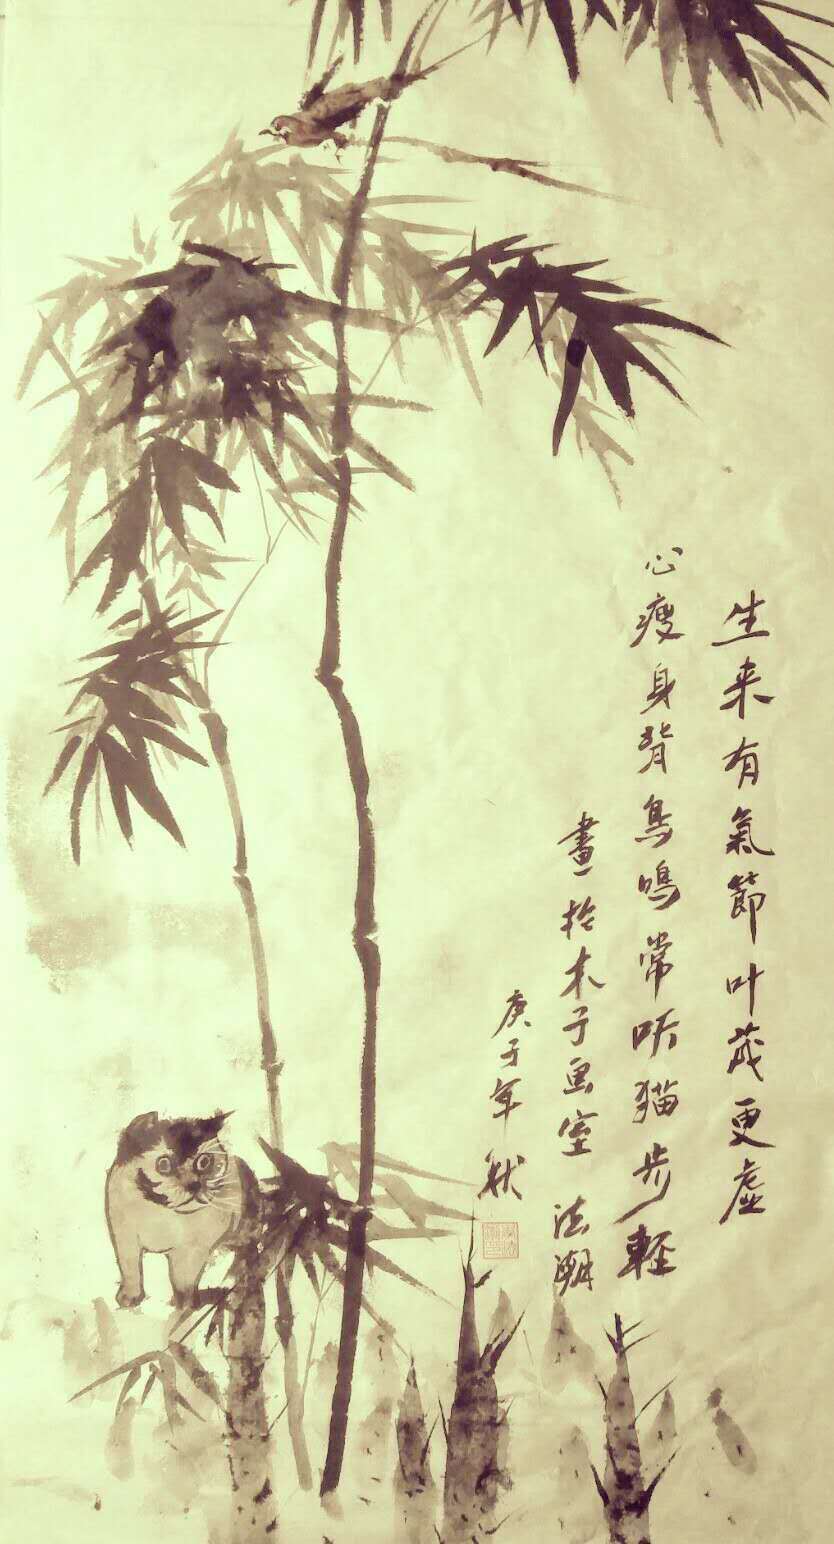 生来有氣節叶茂更虚
心瘦身背鳥鳴常听猫步輕
畫於木子画室 法潮
庚子年秋